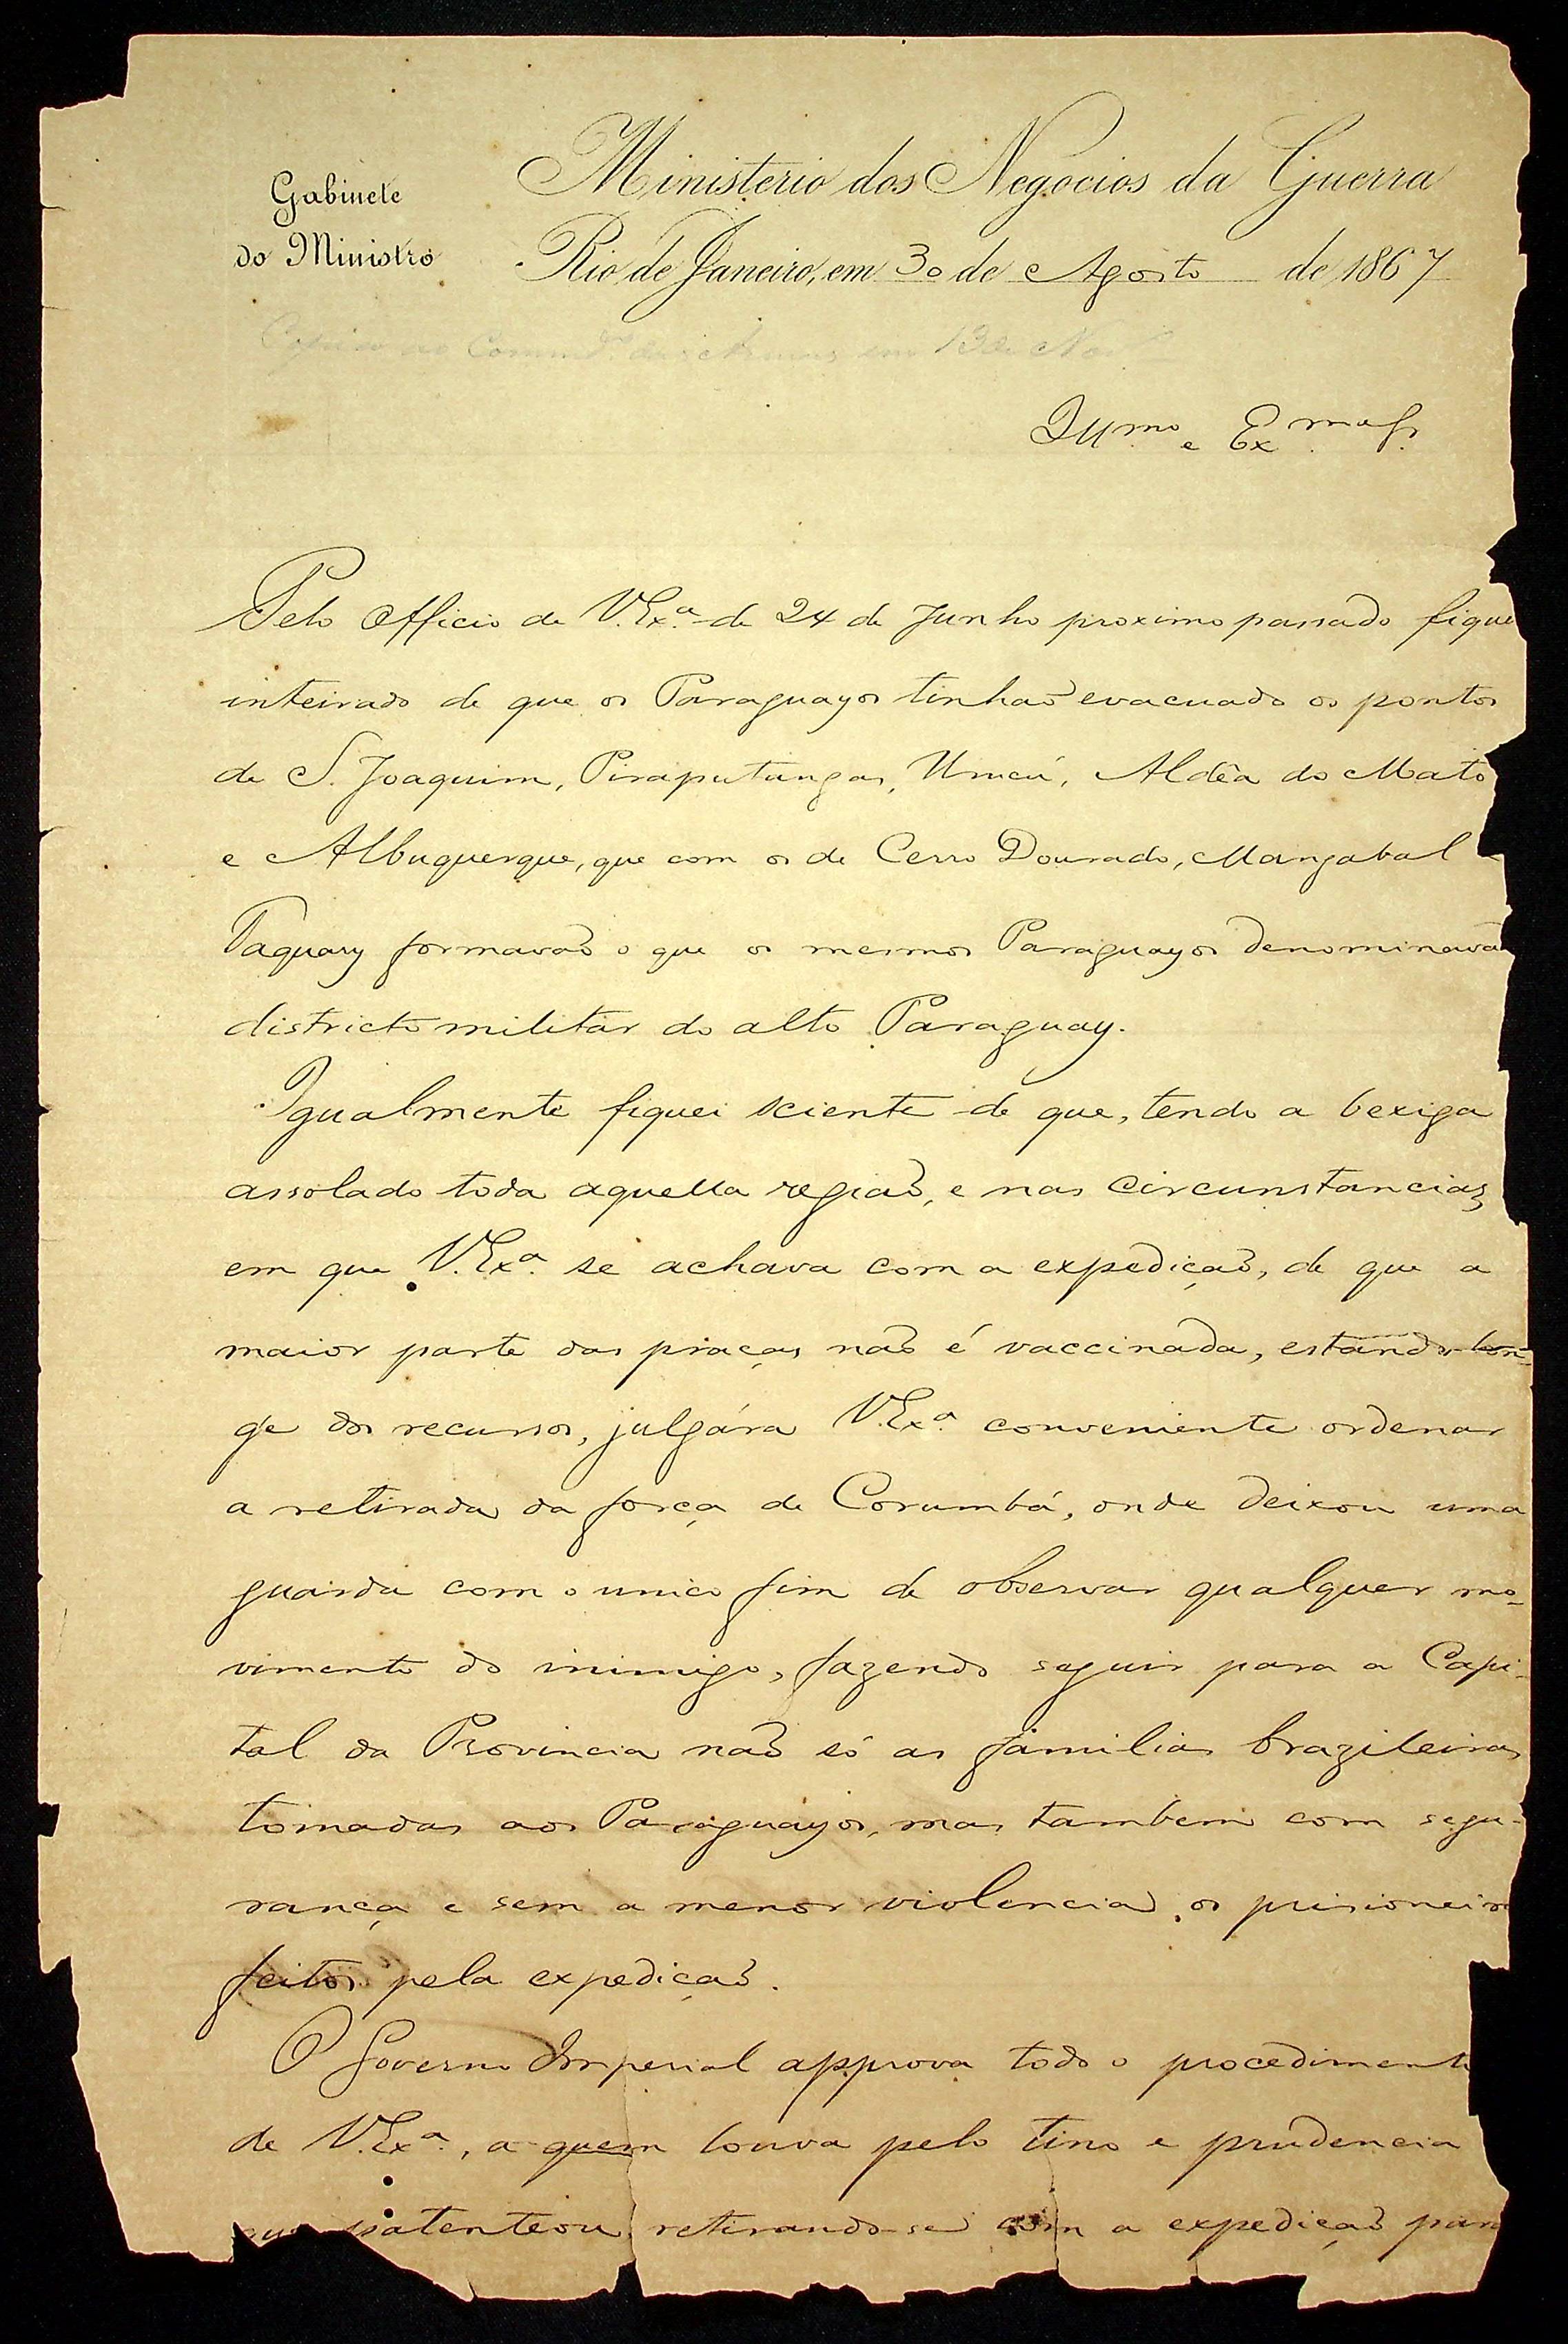 Gabinete
do Ministro
Ministerio dos Negocios da Guerra
Rio de Janeiro, em 30 de Agosto de 1867
em 13 de Nov
Illmo e Exmo Sr.
Pelo Officio de V. Exa. de 24 de Junho proximo passado fique
inteirado de que os Paraguayos tinhaõ evacuado os pontos
de S. Joaquim, Piraputangas, Urucú, Aldêa do Mato
e Albuquerque, que com os de Cerro Dourado, Mangabal
Taquary formavaõ o que os mesmos Paraguayos denominavaõ
districto militar do alto Paraguay.
Igualmente fiquei sciente de que, tendo a bexiga
assolado toda aquella regiaõ, e nas circunstancias
em que V. Exa. se achava com a expediçaõ, de que a
maior parte das praças naõ é vaccinada, estando lon-
ge dos recursos, julgára V. Exa. conveniente ordenar
a retirada da força de Corumbá, onde deixou uma
guarda com o unico fim de observar qualquer mo-
vimento do inimigo, fazendo seguir para a Capi-
tal da Provincia naõ só as familias brazileiras
tomadas aos Paraguayos, mas tambem com segu-
rança e sem a menor violencia os prisioneiros
feitos pela expediçaõ.
O Governo Imperial approva todo o procedimento
de V. Exa., a quem louva pelo tino e prudencia
que patenteou retirando-se com a expediçaõ para